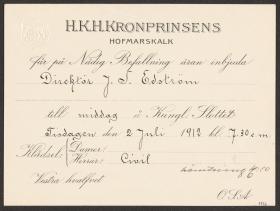 H.K.H. KRONPRINSENS
HOFMARSKALK
får på Nådig Befallning äran enbjuda
Direktör J. S. Edström
till middag å Kungl. Slottet
Tisdagen den 2 Juli 1912 kl 7.30 e.m.
Klädsel: Damer:
Herrar: Civil
Vestra hvalfvet
O.S.A.